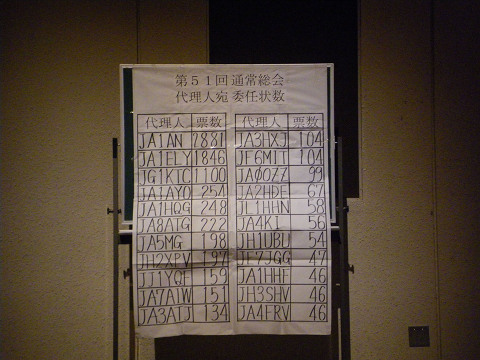 第５１回通常総会
代理人宛 委任状数
代理人 票数 代理人 票数
JA1AN 7881 JA3HXJ 104
JA1ELY 1846 JF6MIT 104
JG1KTC 1100 JA0OZZ 99
JA1AYO 254 JA2HDE 67
JA1HQG 248 JL1HHN 58
JA8ATG 222 JA4KI 56
JA5MG 198 JH1UBU 54
JH2XPV 197 JF7JGG 47
JJ1YQF 159 JA1HHF 46
JA7AIW 151 JH3SHV 46
JA3ATJ 134 JA4FRV 46